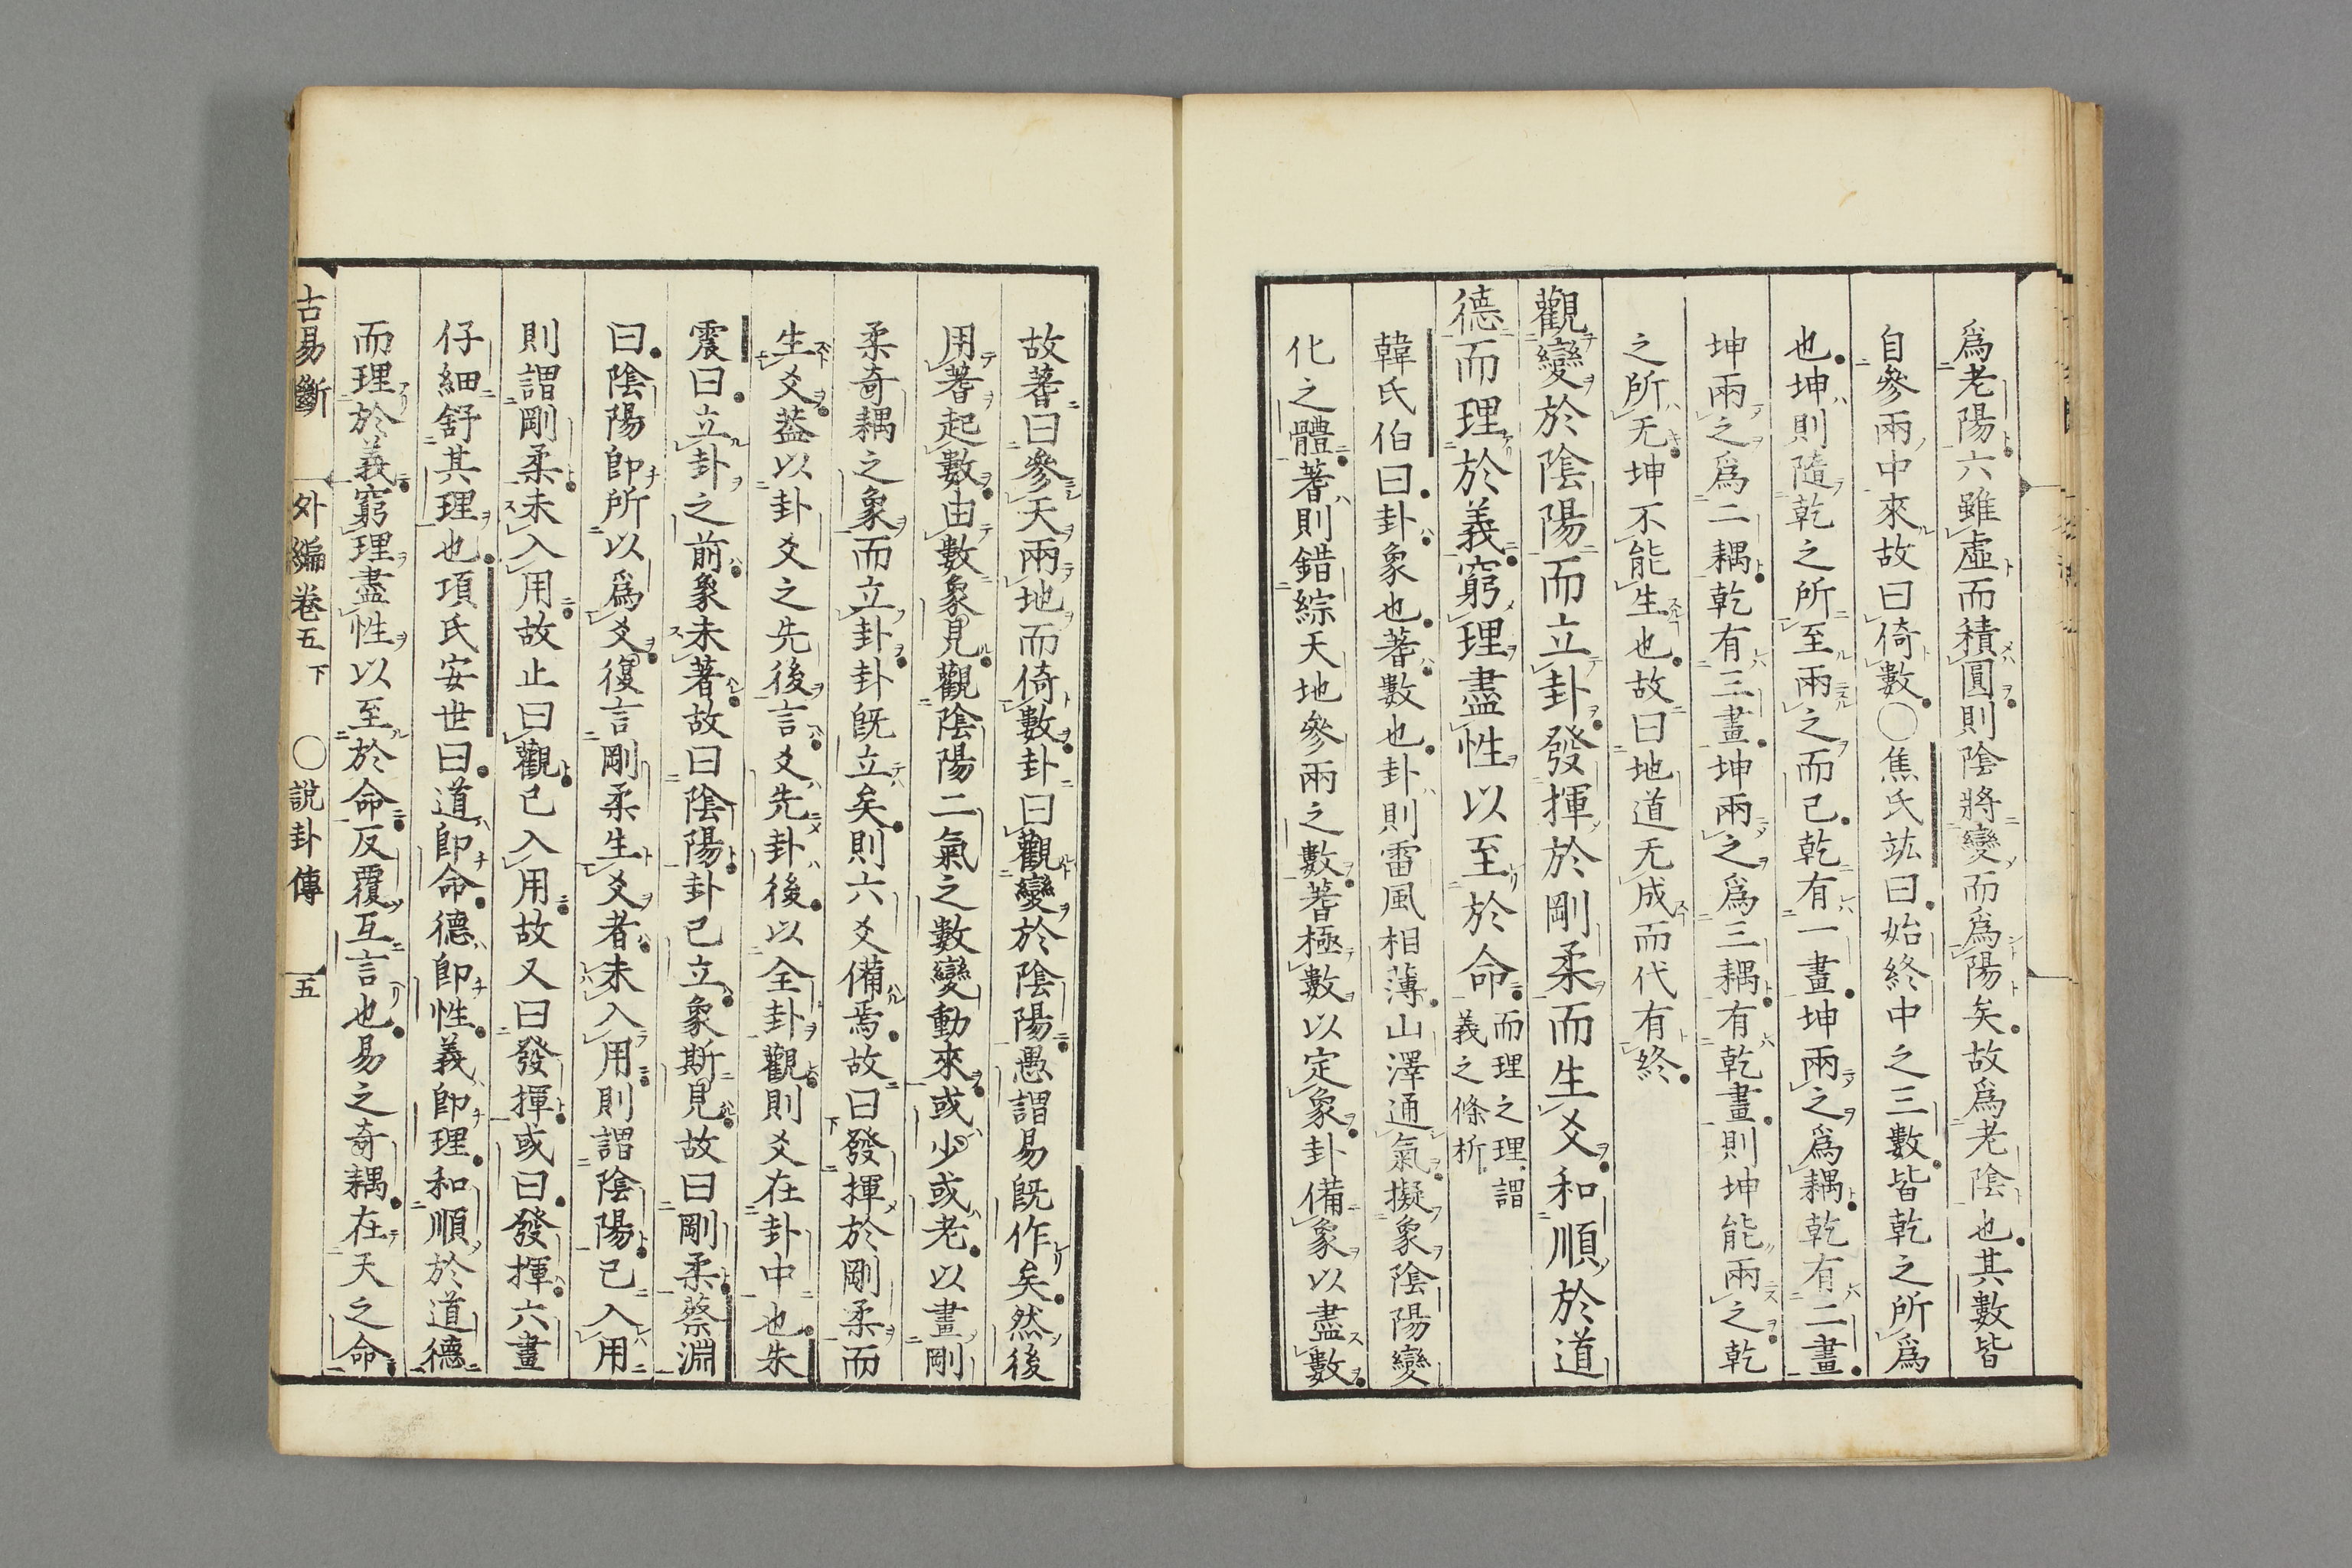 爲老陽六雖虛而積圓則陰將變而爲陽矣故爲老陰也其數皆
自參兩中來故曰倚數〇焦氏竑曰始終中之三數皆乾之所爲
也坤則隨乾之所至兩之而已乾有一畫坤兩之爲耦乾有二畫
坤兩之爲二耦乾有三畫坤兩之爲三耦有乾畫則坤能兩之乾
之所无坤不能生也故曰地道无成而代有終
觀變於陰陽而立卦發揮於剛柔而生爻和順於道
德而理於義窮理盡性以至於命而理之理謂義之條析
韓氏伯曰卦象也蓍數也卦則雷風相薄山澤通氣擬象陰陽變
化之體蓍則錯綜天地參兩之數蓍極數以定象卦備象以盡數
故蓍曰參天兩地而倚數卦曰觀變於陰陽愚謂易旣作矣然後
用蓍起數由數象見觀陰陽二氣之數變動來或少或老以畫剛
柔奇耦之象而立卦卦旣立矣則六爻備焉故曰發揮於剛柔而
生爻葢以卦爻之先後言爻先卦後以全卦觀則爻在卦中也朱
震曰立卦之前象未著故曰陰陽卦已立象斯見故曰剛柔蔡淵
曰陰陽卽所以爲爻復言剛柔生爻者未入用則謂陰陽已入用
則謂剛柔未入用故止曰觀已入用故又曰發揮或曰發揮六畫
仔細舒其理也項氏安世曰道卽命德卽性義卽理和順於道德
而理於義窮理盡性以至於命反覆互言也易之奇耦在天之命
古易斷　外編卷五下　〇說卦傳　五